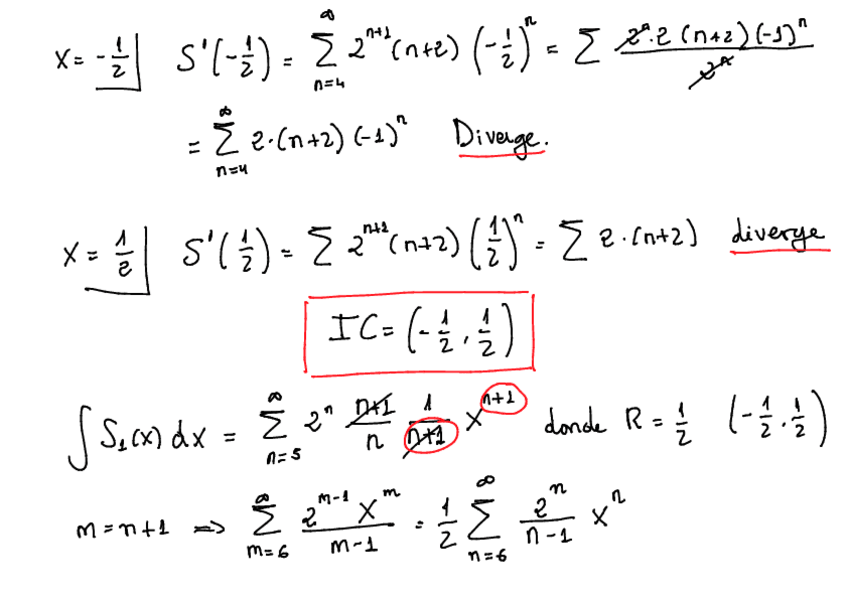 x = -1/2 | S'(-1/2) = ∑_{n=4}^{∞} 2^{n+1} (n+2) (-1/2)^n = ∑ 2^n · 2 (n+2) (-1)^n / 2^n
= ∑_{n=4}^{∞} 2·(n+2) (-1)^n Diverge.
x = 1/2 | S'(1/2) = ∑ 2^{n+1} (n+2) (1/2)^n = ∑ 2·(n+2) diverge
IC = (-1/2, 1/2)
∫ S_1(x) dx = ∑_{n=5}^{∞} 2^n (n+1)/n 1/(n+1) x^{n+1} donde R = 1/2 (-1/2, 1/2)
m = n+1 ⇒ ∑_{m=6}^{∞} 2^{m-1} x^m / (m-1) = 1/2 ∑_{n=6}^{∞} 2^n/(n-1) x^n